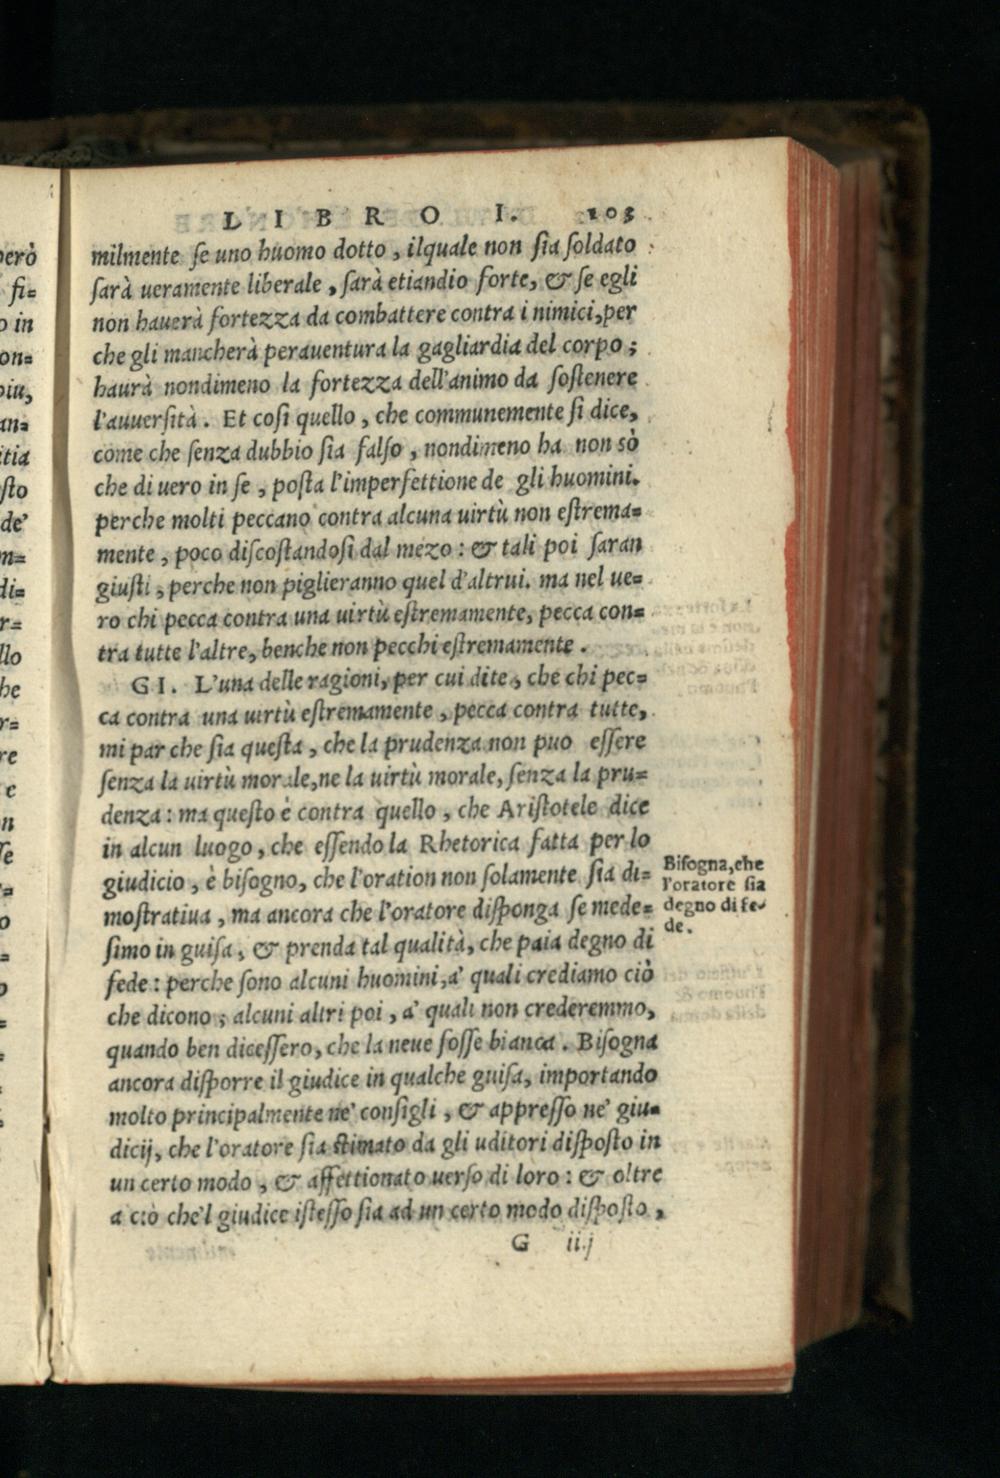 LIBRO I. 103
milmente se uno huomo dotto, ilquale non sia soldato
sarà ueramente liberale, sarà etiandio forte, & se egli
non hauerà fortezza da combattere contra i nimici, per
che gli mancherà perauentura la gagliardia del corpo;
haurà nondimeno la fortezza dell'animo da sostenere
l'auuersità. Et cosi quello, che communemente si dice,
come che senza dubbio sia falso, nondimeno ha non sò
che di uero in se, posta l'imperfettione de gli huomini.
perche molti peccano contra alcuna uirtù non estrema=
mente, poco discostandosi dal mezo: & tali poi saran
giusti, perche non piglieranno quel d'altrui. ma nel ue=
ro chi pecca contra una uirtù estremamente, pecca con=
tra tutte l'altre, benche non pecchi estremamente.
GI. L'una delle ragioni, per cui dite, che chi pec=
ca contra una uirtù estremamente, pecca contra tutte,
mi par che sia questa, che la prudenza non puo essere
senza la uirtù morale, ne la uirtù morale, senza la pru=
denza: ma questo è contra quello, che Aristotele dice
in alcun luogo, che essendo la Rhetorica fatta per lo
giudicio, è bisogno, che l'oration non solamente sia di=
mostratiua, ma ancora che l'oratore disponga se mede=
simo in guisa, & prenda tal qualità, che paia degno di
fede: perche sono alcuni huomini, a' quali crediamo ciò
che dicono; alcuni altri poi, a' quali non crederemmo,
quando ben dicessero, che la neue fosse bianca. Bisogna
ancora disporre il giudice in qualche guisa, importando
molto principalmente ne' consigli, & appresso ne' giu=
dicij, che l'oratore sia stimato da gli uditori disposto in
un certo modo, & affettionato uerso di loro: & oltre
a ciò che'l giudice istesso sia ad un certo modo disposto,
G iij
Bisogna, che
l'oratore sia
degno di fe-
de.
erò
fi=
o in
on=
piu,
an=
itia
sto
de'
m=
di=
r=
llo
he
r=
re
e
n